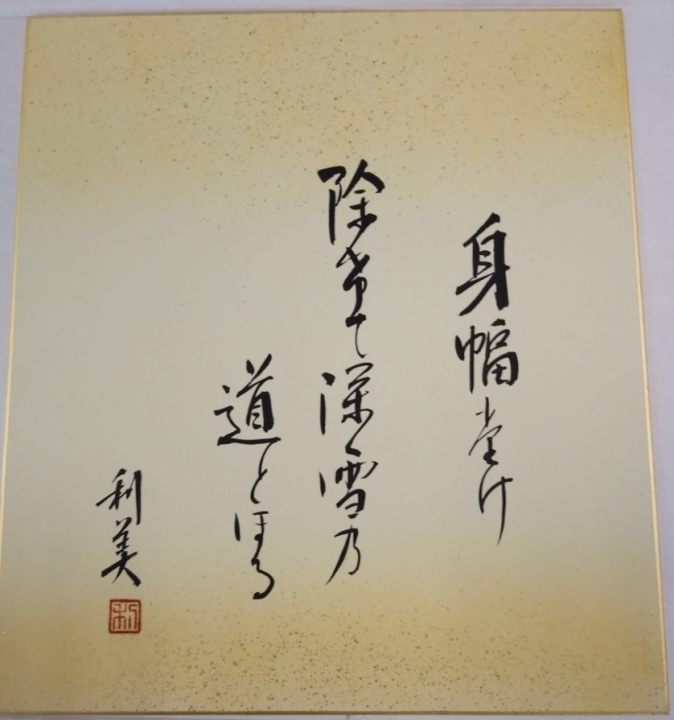 身幅堂け
除希て深雪乃
道とほる
利美
利